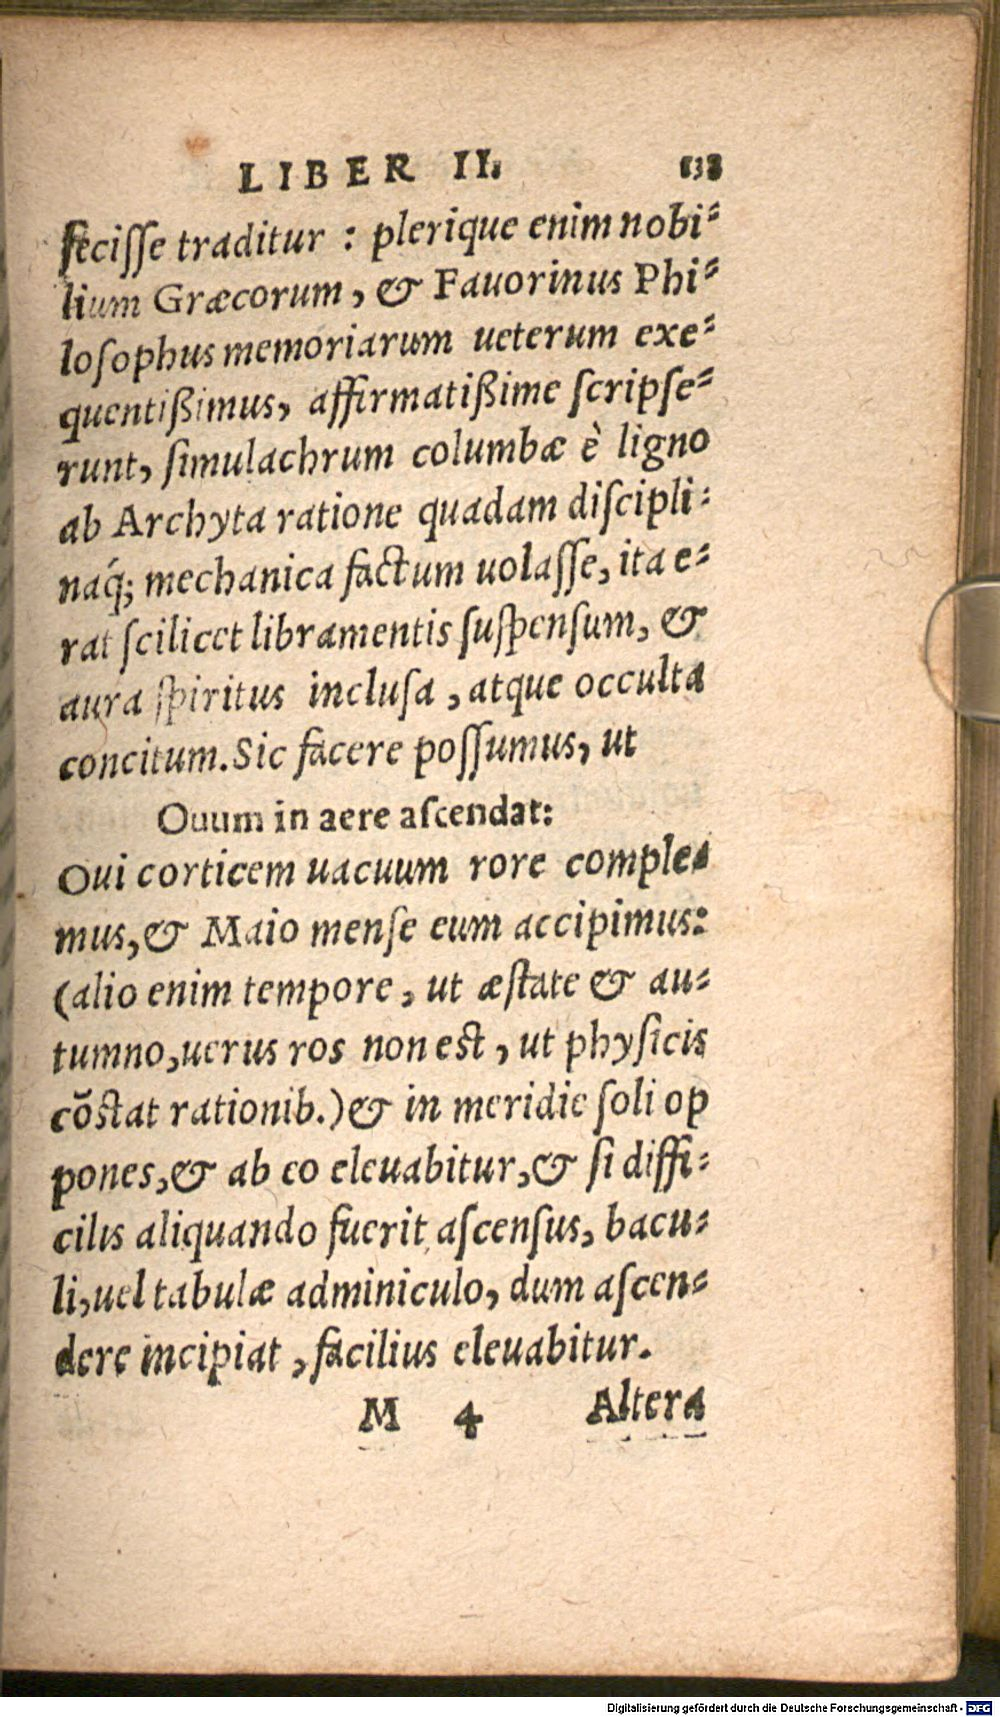 LIBER II. 138
feciſſe traditur : plerique enim nobi-
lium Græcorum, & Fauorinus Phi-
loſophus memoriarum ueterum exe-
quentißimus, affirmatißime ſcripſe-
runt, ſimulachrum columbæ è ligno
ab Archyta ratione quadam diſcipli-
naq́; mechanica factum uolaſſe, ita e-
rat ſcilicet libramentis ſuſpenſum, &
aura ſpiritus incluſa, atque occulta
concitum. Sic facere poſſumus, ut
Ouum in aere aſcendat:
Oui corticem uacuum rore comple-
mus, & Maio menſe eum accipimus:
(alio enim tempore, ut æſtate & au-
tumno, uerus ros non eſt, ut phyſicis
cōſtat rationib.) & in meridie ſoli op
pones, & ab eo eleuabitur, & ſi diffi-
cilis aliquando fuerit aſcenſus, bacu-
li, uel tabulæ adminiculo, dum aſcen-
dere incipiat, facilius eleuabitur.
M 4 Altera
Digitalisierung gefördert durch die Deutsche Forschungsgemeinschaft - DFG